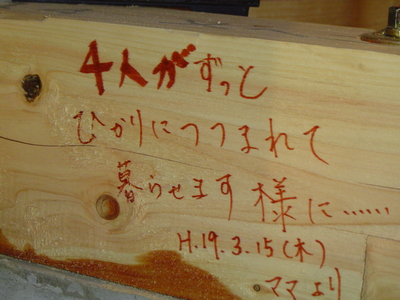 4人がずっと
ひかりにつつまれて
暮らせます様に……
H.19.3.15(木)
ママより